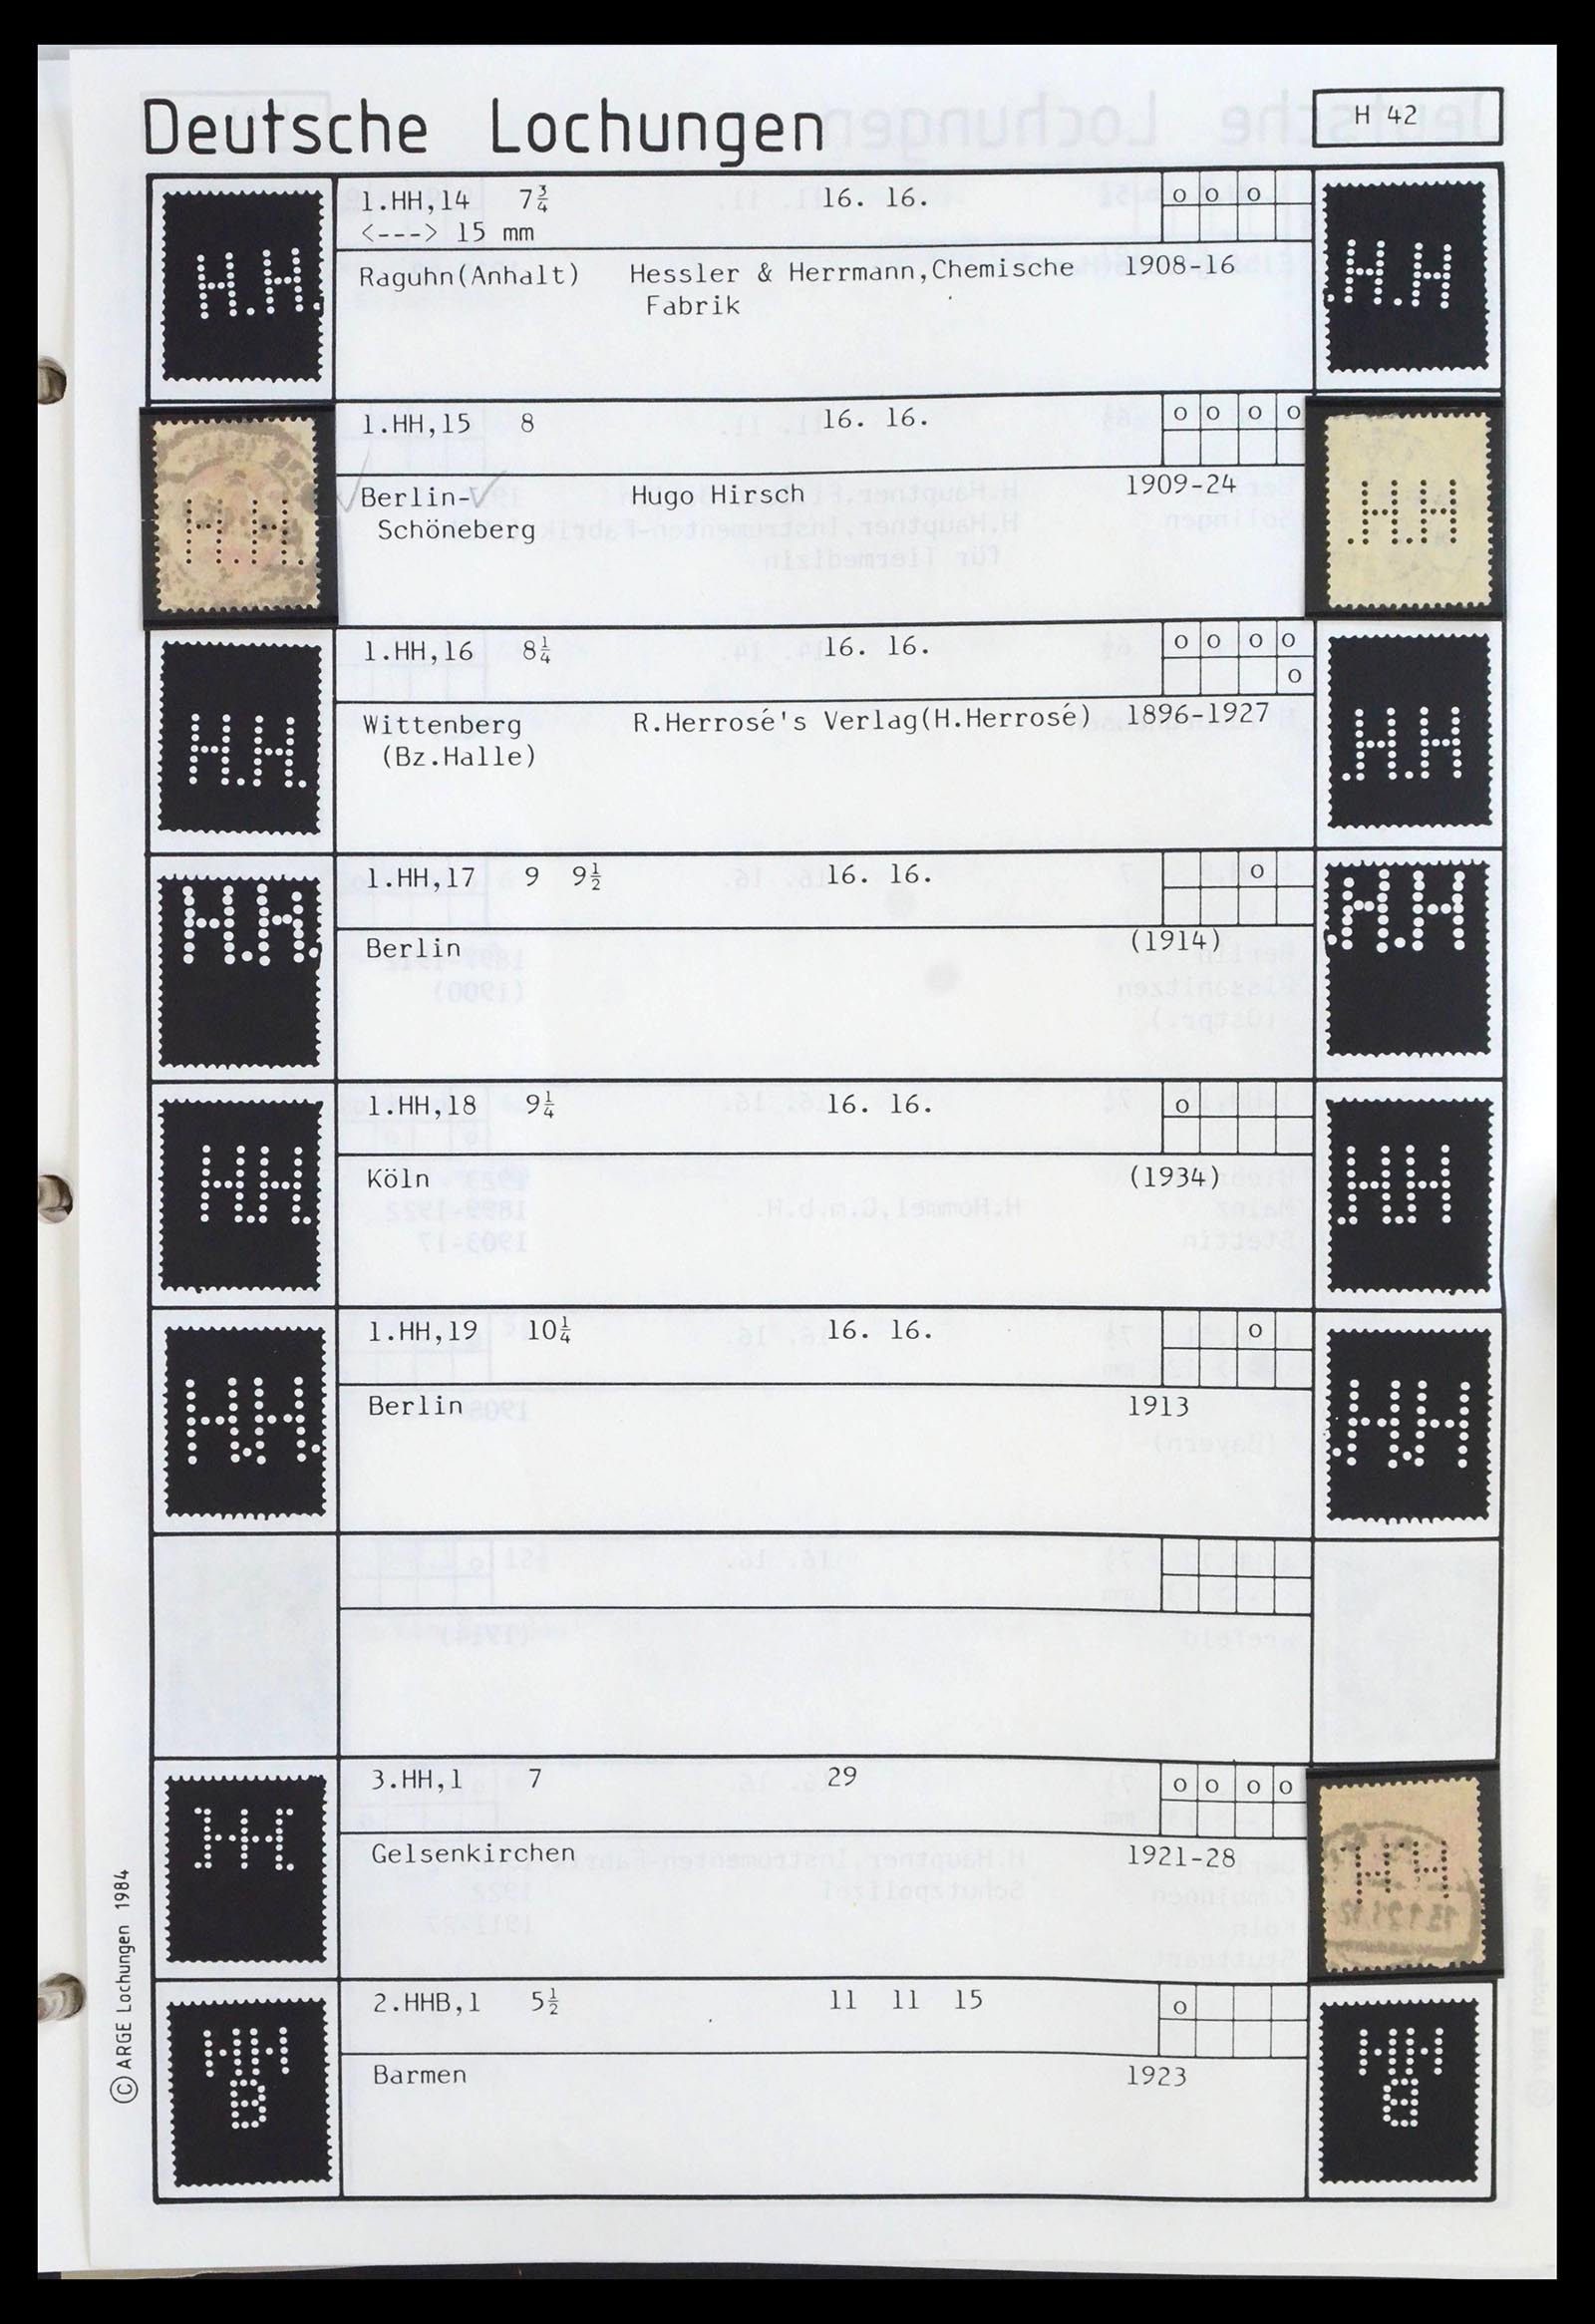 Deutsche Lochungen
H 42
1.HH,14 7¾ 16. 16. o o o
<---> 15 mm
Raguhn(Anhalt) Hessler & Herrmann,Chemische 1908-16
Fabrik
H.H.
.H.H
1.HH,15 8 16. 16. o o o o
Berlin- Hugo Hirsch 1909-24
Schöneberg
H.H.
.H.H
1.HH,16 8¼ 16. 16. o o o o
o
Wittenberg R.Herrosé's Verlag(H.Herrosé) 1896-1927
(Bz.Halle)
H.H.
.H.H
1.HH,17 9 9½ 16. 16. o
Berlin (1914)
H.H.
.H.H
1.HH,18 9¼ 16. 16. o
Köln (1934)
H.H.
.H.H
1.HH,19 10¼ 16. 16. o
Berlin 1913
H.H.
.H.H
3.HH,1 7 29 o o o o
Gelsenkirchen 1921-28
HH
HH
2.HHB,1 5½ 11 11 15 o
Barmen 1923
HH
B
HH
B
© ARGE Lochungen 1984